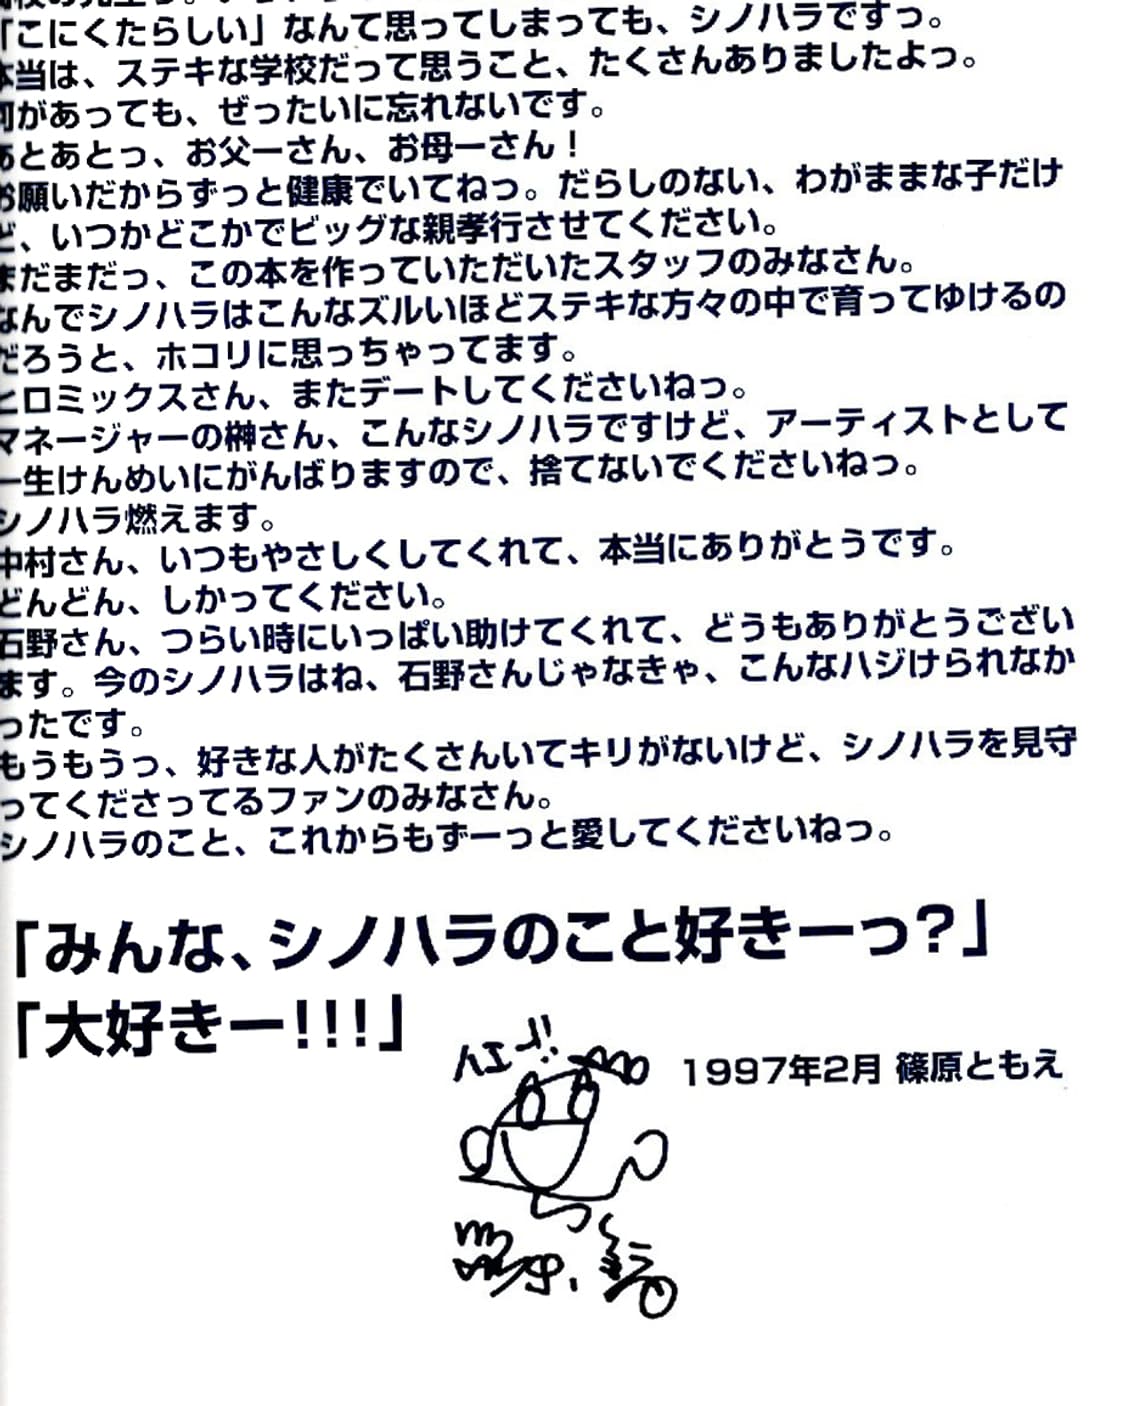 「こにくたらしい」なんて思ってしまっても、シノハラですっ。
本当は、ステキな学校だって思うこと、たくさんありましたよっ。
何があっても、ぜったいに忘れないです。
あとあとっ、お父ーさん、お母ーさん！
お願いだからずっと健康でいてねっ。だらしのない、わがままな子だけ
ど、いつかどこかでビッグな親孝行させてください。
まだまだっ、この本を作っていただいたスタッフのみなさん。
なんでシノハラはこんなズルいほどステキな方々の中で育ってゆけるの
だろうと、ホコリに思っちゃってます。
ヒロミックスさん、またデートしてくださいねっ。
マネージャーの榊さん、こんなシノハラですけど、アーティストとして
一生けんめいにがんばりますので、捨てないでくださいねっ。
シノハラ燃えます。
中村さん、いつもやさしくしてくれて、本当にありがとうです。
どんどん、しかってください。
石野さん、つらい時にいっぱい助けてくれて、どうもありがとうござい
ます。今のシノハラはね、石野さんじゃなきゃ、こんなハジけられなか
ったです。
もうもうっ、好きな人がたくさんいてキリがないけど、シノハラを見守
ってくださってるファンのみなさん。
シノハラのこと、これからもずーっと愛してくださいねっ。
「みんな、シノハラのこと好きーっ？」
「大好きー！！！」
1997年2月 篠原ともえ